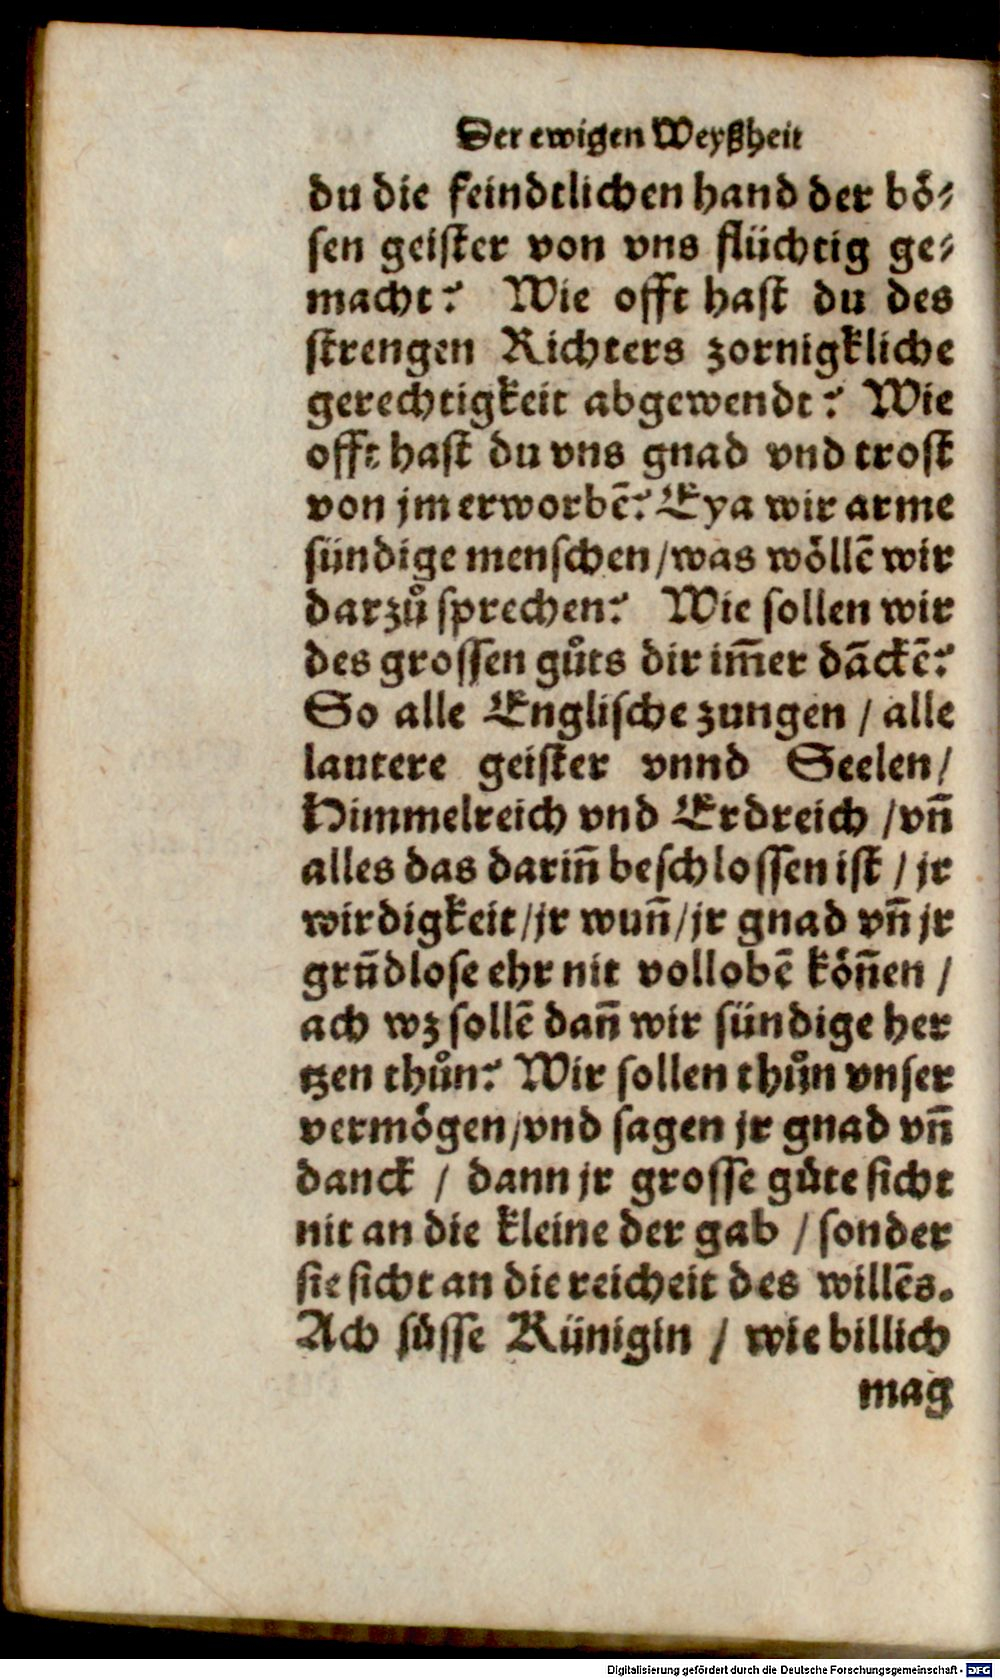 Der ewigen Weyßheit
du die feindtlichen hand der bö⸗
sen geister von vns flüchtig ge⸗
macht? Wie offt hast du des
strengen Richters zornigkliche
gerechtigkeit abgewendt? Wie
offt hast du vns gnad vnd trost
von jm erworbẽ? Eya wir arme
sündige menschen / was wöllẽ wir
darzů sprechen? Wie sollen wir
des grossen gůts dir im̃er dãckẽ?
So alle Englische zungen / alle
lautere geister vnnd Seelen /
Himmelreich vnd Erdreich / vñ
alles das dariñ beschlossen ist / jr
wirdigkeit / jr wuñ / jr gnad vñ jr
grũdlose ehr nit vollobẽ köñen /
ach wz sollẽ dañ wir sündige her
tzen thůn? Wir sollen thůn vnser
vermögen / vnd sagen jr gnad vñ
danck / dann jr grosse güte sicht
nit an die kleine der gab / sonder
sie sicht an die reicheit des willẽs.
Ach süsse Künigin / wie billich
mag
Digitalisierung gefördert durch die Deutsche Forschungsgemeinschaft - DFG